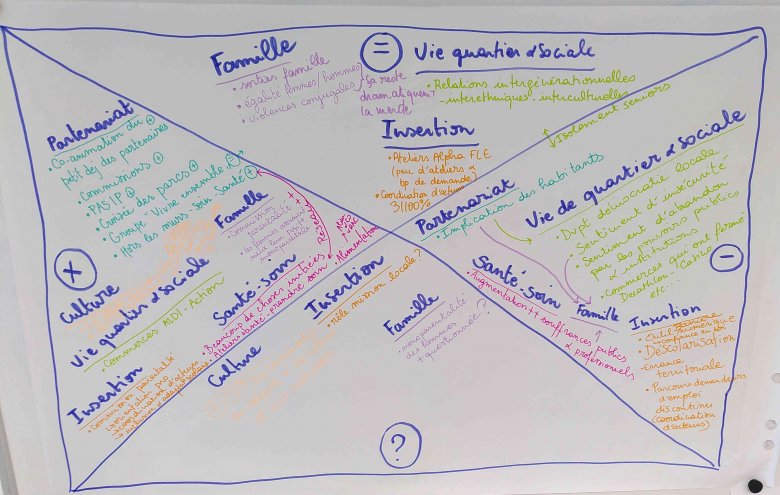 Famille
soutien famille
• égalité femmes/hommes
• violences conjugales
ça reste
dramatiquement
la merde
=
Vie quartier & sociale
• Relations intergénérationnelles
- interethniques - interculturelles
Isolement seniors
Insertion
• Ateliers Alpha FLE
(peu d'ateliers
bp de demande)
• Coordination d'acteurs
3/100%
Partenariat
• Co-animation du +
petit dej des partenaires
• Commissions +
• PASIP +
• Groupe "Vivre ensemble" =
• Hors les murs - Soin Santé +
Famille
• Commission
parentalité
monoparentalité
• Alimentation
+
Culture
Vie quartier & sociale
• Commerces ALDI - Action
Insertion
• Commission parentalité
Santé-Soin
• Beaucoup de choses initiées
• Ateliers santé - prendre soin
Culture
Insertion
• Rôle mission locale?
Famille
• monoparentalité
des hommes
+ questionné?
?
Partenariat
• Implication des habitants
Vie de quartier & sociale
• Dvpt démocratie locale
• Sentiment d'insécurité
• Sentiment d'abandon
par les pouvoirs publics
& institutions
• Commerces qui ont fermé
Decathlon -
etc.
-
Santé-Soin
• Augmentation ++ souffrances publics
& professionnels
Famille
Insertion
• Outil numérique
• Descolarisation
• Errance
territoriale
• Parcours demandeurs
d'emploi
discontinu
(coordination
d'acteurs)